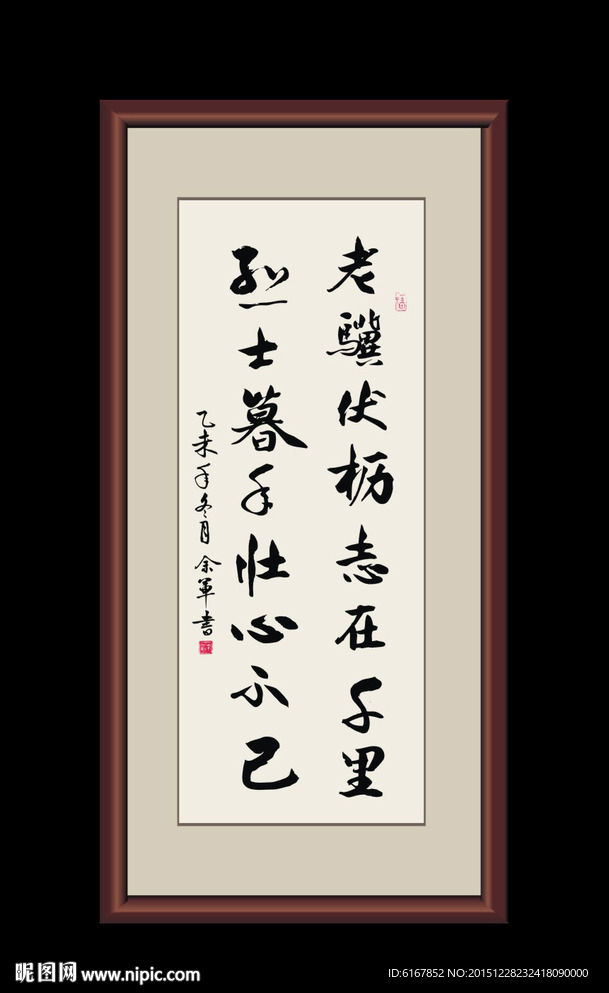 老骥伏枥志在千里
烈士暮年壮心不已
乙未年冬月 余军书
昵图网 www.nipic.com
ID:6167852 NO:20151228232418090000